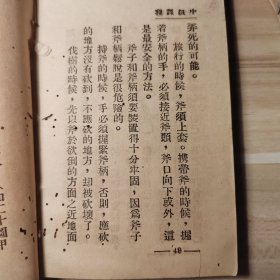 弄死的可能。
旅行的時候，斧須上套。携帶斧的時候，握
着斧柄的手，必須接近斧頭，斧口向下或外，這
是最安全的方法。
斧子和斧柄須要裝置得十分牢固，因爲斧子
和斧柄鬆脫是很危險的。
持斧的時候，手必須握緊斧柄，否則，應砍
的地方沒有砍到，不應砍的地方，却被砍壞了。
伐樹的時候，先以斧於欲倒的方面之近地面
49